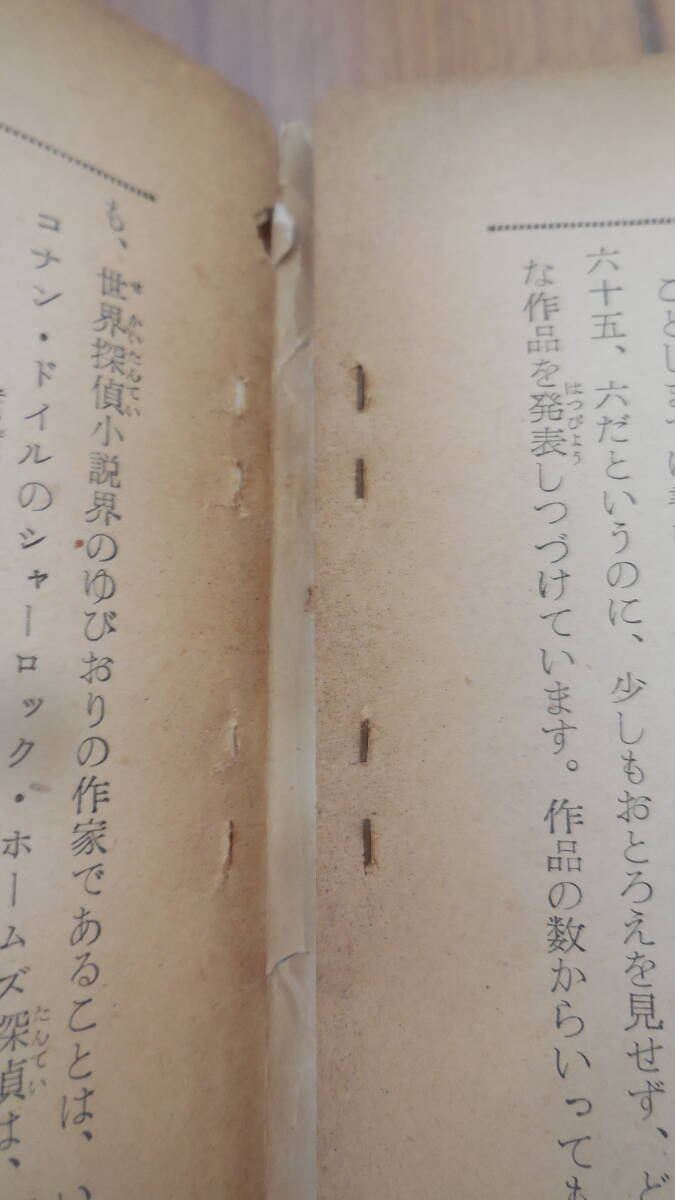 六十五、六だというのに、少しもおとろえを見せず、ど
な作品を発表しつづけています。作品の数からいっても
はつぴよう
も、世界探偵小説界のゆびおりの作家であることは、い
せかいたんてい
コナン・ドイルのシャーロック・ホームズ探偵は、
たんてい